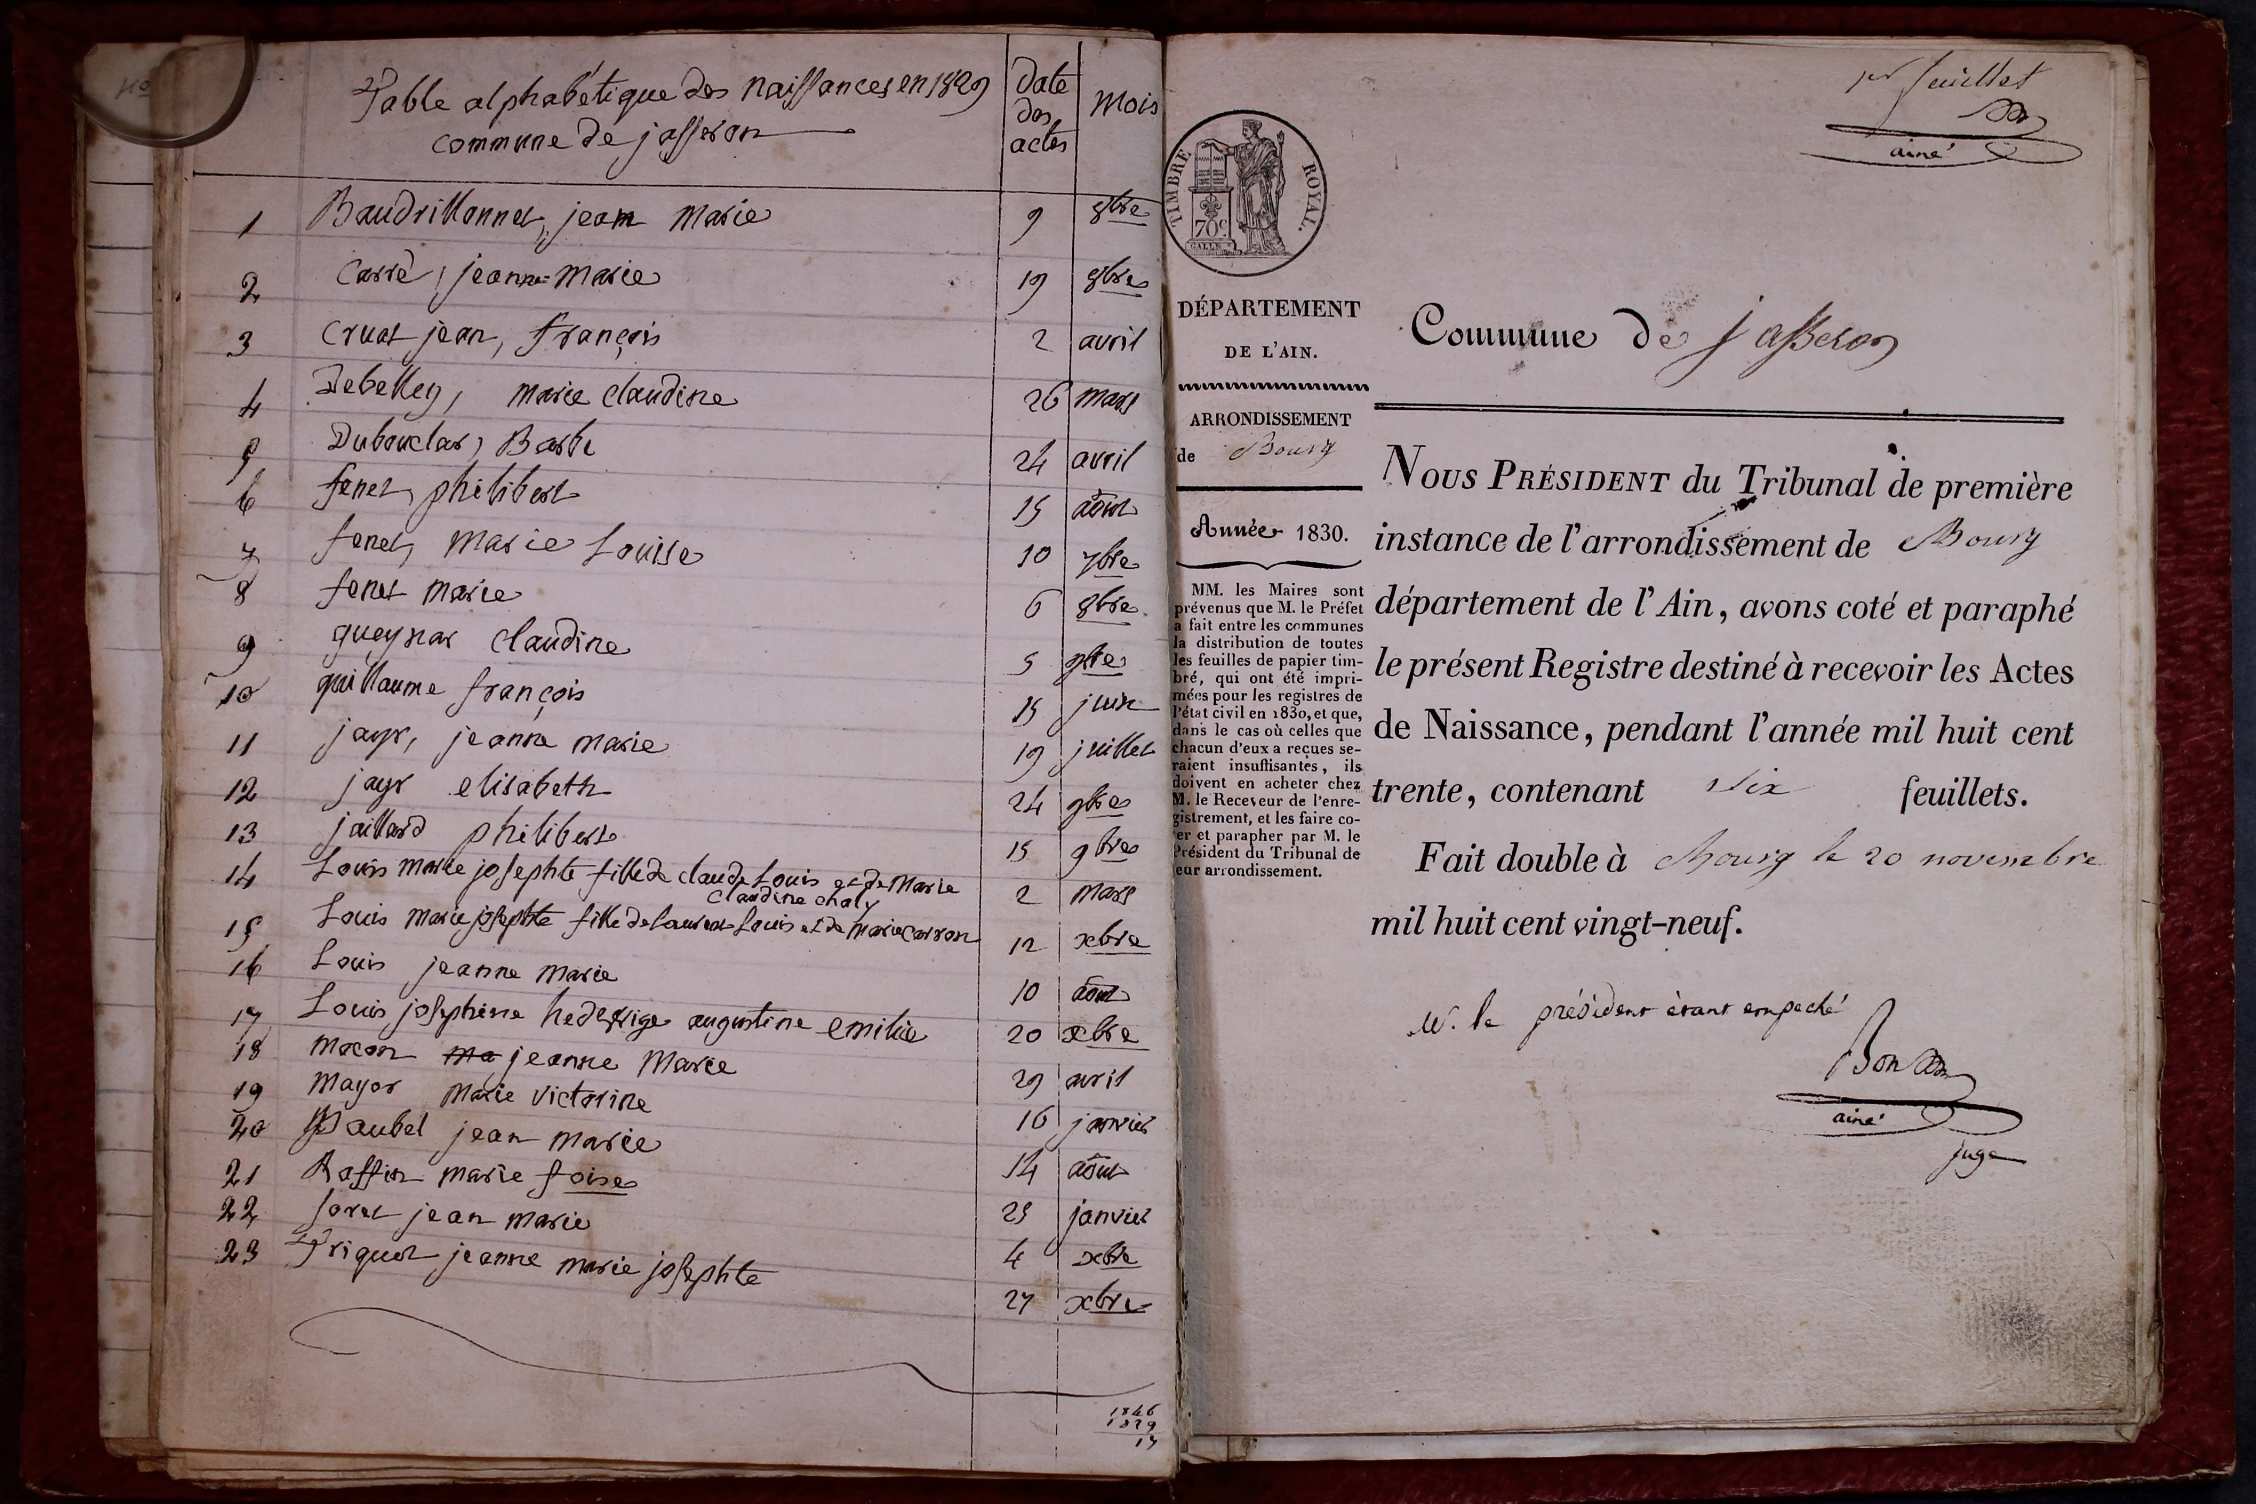 Table alphabétique des naissances en 1829
commune de jasseron
Date des actes
Mois
1 Baudrillonnet, jean Marie 9 8bre
2 Carré, jeanne Marie 19 8bre
3 Cruat jean, françois 2 avril
4 Debelley, marie claudine 26 mars
5 Dubouclas, Barbe 24 avril
6 fenet, philibert 15 août
7 fenet, Marie Louise 10 7bre
8 fenet marie 6 8bre
9 claudine 5 9bre
10 guillaume françois 15 juin
11 jayr, jeanne marie 19 juillet
12 jayr elisabeth 24 9bre
13 jaillard philibert 15 9bre
14 Louis marie josephte fille de claude Louis et de Marie
claudine chaly 2 mars
15 Louis marie josephte fille de laurent Louis et de marie carron 12 xbre
16 Louis jeanne marie 10 août
17 Louis josephine hedwige augustine emilie 20 xbre
18 macon ma jeanne Marie 29 avril
19 mayor marie victorine 16 janvier
20 Paubel jean marie 14 août
21 Raffin marie foise 25 janvier
22 foret jean marie 4 xbre
23 Triquet jeanne marie josephte 27 xbre
1846
1829
17
1er feuillet
ainé
TIMBRE ROYAL.
70c
DÉPARTEMENT
DE L'AIN.
ARRONDISSEMENT
de Bourg
Année 1830.
MM. les Maires sont
prévenus que M. le Préfet
a fait entre les communes
la distribution de toutes
les feuilles de papier tim-
bré, qui ont été impri-
mées pour les registres de
l'état civil en 1830, et que,
dans le cas où celles que
chacun d'eux a reçues se-
raient insuffisantes, ils
doivent en acheter chez
M. le Receveur de l'enre-
gistrement, et les faire co-
ter et parapher par M. le
Président du Tribunal de
leur arrondissement.
Commune de Jasseron
NOUS PRÉSIDENT du Tribunal de première
instance de l'arrondissement de Bourg
département de l'Ain, avons coté et paraphé
le présent Registre destiné à recevoir les Actes
de Naissance, pendant l'année mil huit cent
trente, contenant Six feuillets.
Fait double à Bourg le 20 novembre
mil huit cent vingt-neuf.
M. le président étant empeché
ainé
juge